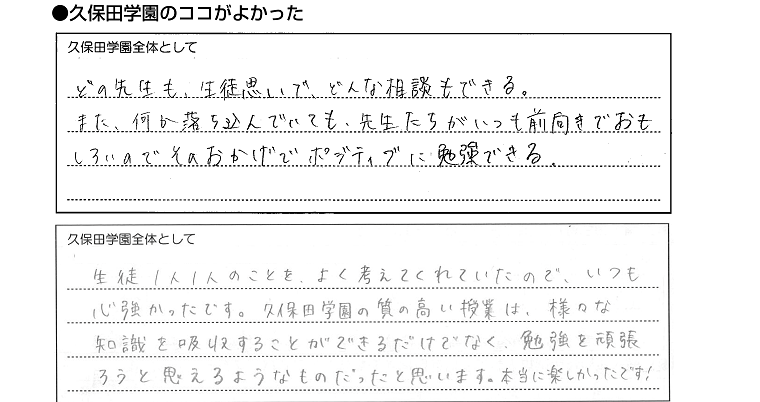 ●久保田学園のココがよかった
久保田学園全体として
どの先生も、生徒思いで、どんな相談もできる。
また、何か落ち込んでいても、先生たちがいつも前向きでおも
しろいのでそのおかげでポジティブに勉強できる。
久保田学園全体として
生徒1人1人のことを、よく考えてくれていたので、いつも
心強かったです。久保田学園の質の高い授業は、様々な
知識を吸収することができるだけでなく、勉強を頑張
ろうと思えるようなものだったと思います。本当に楽しかったです!